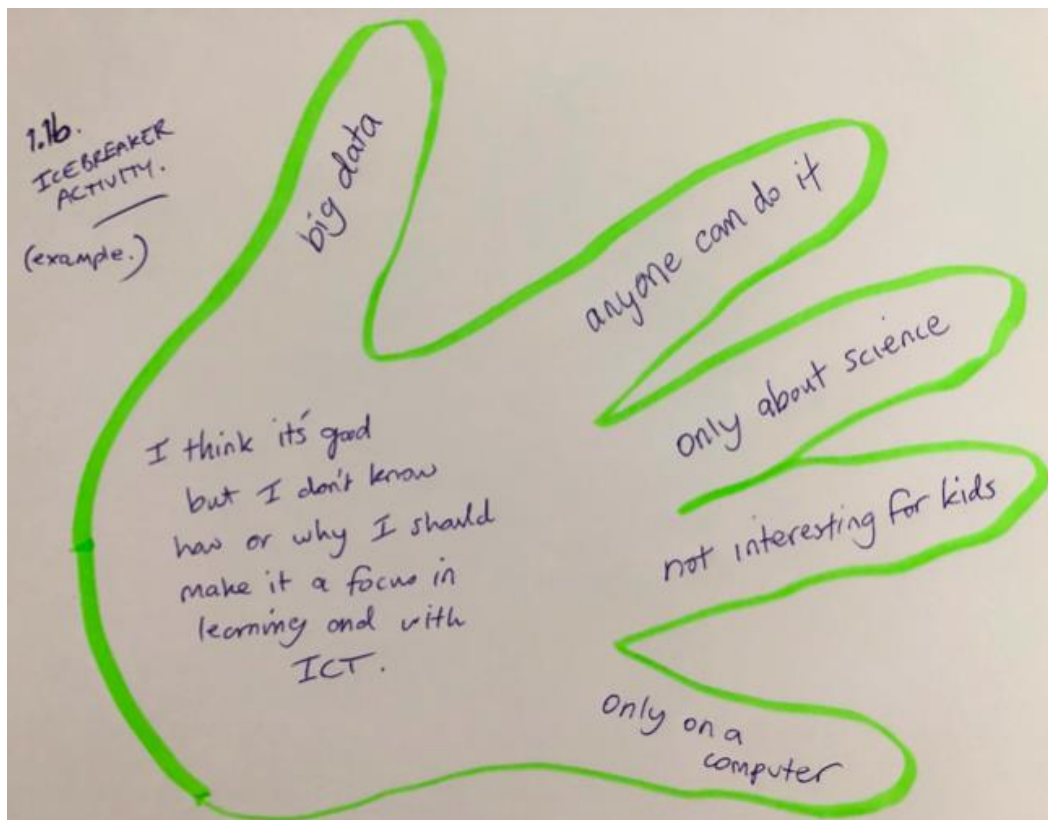 1.1b.
ICEBREAKER
ACTIVITY.
(example.)
big data
anyone can do it
only about science
not interesting for kids
only on a
computer
I think it's good
but I don't know
how or why I should
make it a focus in
learning and with
ICT.